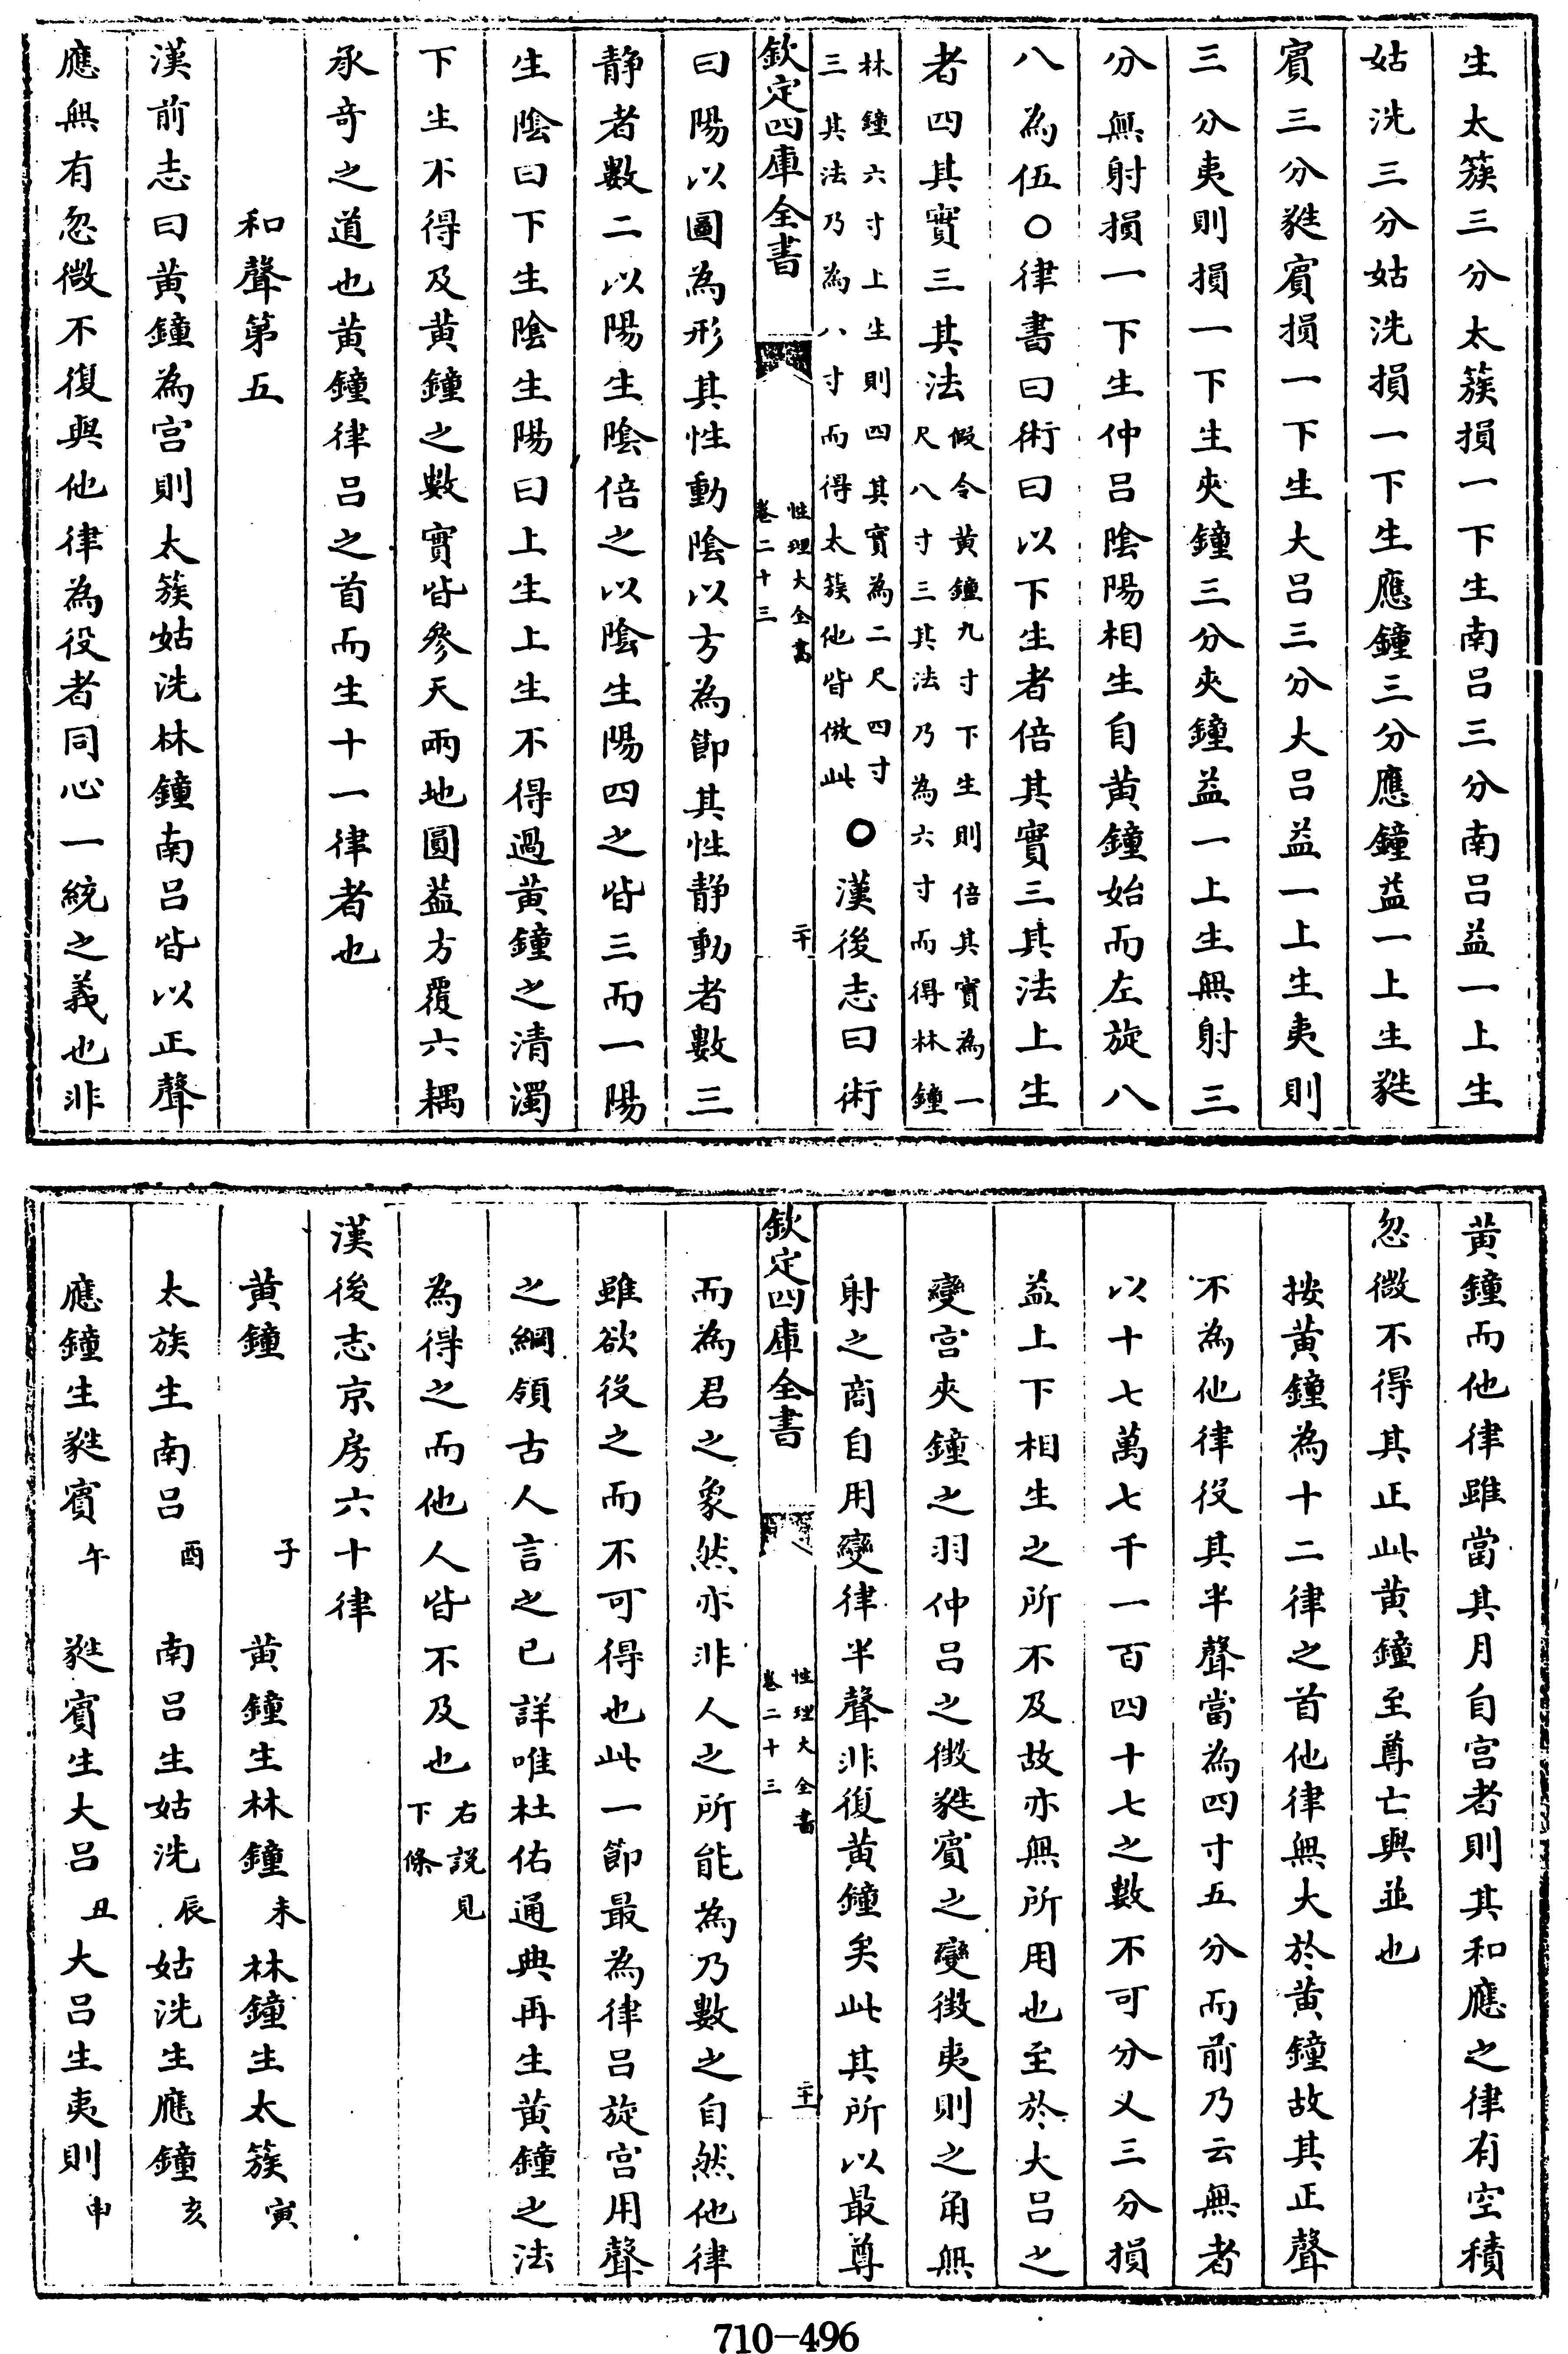 生太簇三分太簇損一下生南呂三分南呂益一上生
姑洗三分姑洗損一下生應鐘三分應鐘益一上生蕤
賓三分蕤賓損一下生大呂三分大呂益一上生夷則
三分夷則損一下生夾鐘三分夾鐘益一上生無射三
分無射損一下生仲呂陰陽相生自黃鐘始而左旋八
八為伍○律書曰術曰以下生者倍其實三其法上生
者四其實三其法假令黃鐘九寸下生則倍其實為一
尺八寸三其法乃為六寸而得林鐘
林鐘六寸上生則四其實為二尺四寸
三其法乃為八寸而得太簇他皆倣此○漢後志曰術
欽定四庫全書
性理大全書
卷二十三
二十
曰陽以圓為形其性動陰以方為節其性靜動者數三
靜者數二以陽生陰倍之以陰生陽四之皆三而一陽
生陰曰下生陰生陽曰上生上生不得過黃鐘之清濁
下生不得及黃鐘之數實皆參天兩地圓蓋方覆六耦
承奇之道也黃鐘律呂之首而生十一律者也
和聲第五
漢前志曰黃鐘為宮則太簇姑洗林鐘南呂皆以正聲
應無有忽微不復與他律為役者同心一統之義也非
黃鐘而他律雖當其月自宮者則其和應之律有空積
忽微不得其正此黃鐘至尊亡與並也
按黃鐘為十二律之首他律無大於黃鐘故其正聲
不為他律役其半聲當為四寸五分而前乃云無者
以十七萬七千一百四十七之數不可分乂三分損
益上下相生之所不及故亦無所用也至於大呂之
變宮夾鐘之羽仲呂之徵蕤賓之變徵夷則之角無
射之商自用變律半聲非復黃鐘矣此其所以最尊
欽定四庫全書
性理大全書
卷二十三
二十一
而為君之象然亦非人之所能為乃數之自然他律
雖欲役之而不可得也此一節最為律呂旋宮用聲
之綱領古人言之已詳唯杜佑通典再生黃鐘之法
為得之而他人皆不及也右說見
下條
漢後志京房六十律
黃鐘 子 黃鐘生林鐘未林鐘生太簇寅
太族生南呂酉 南呂生姑洗辰姑洗生應鐘亥
應鐘生蕤賓午 蕤賓生大呂丑大呂生夷則申
710-496